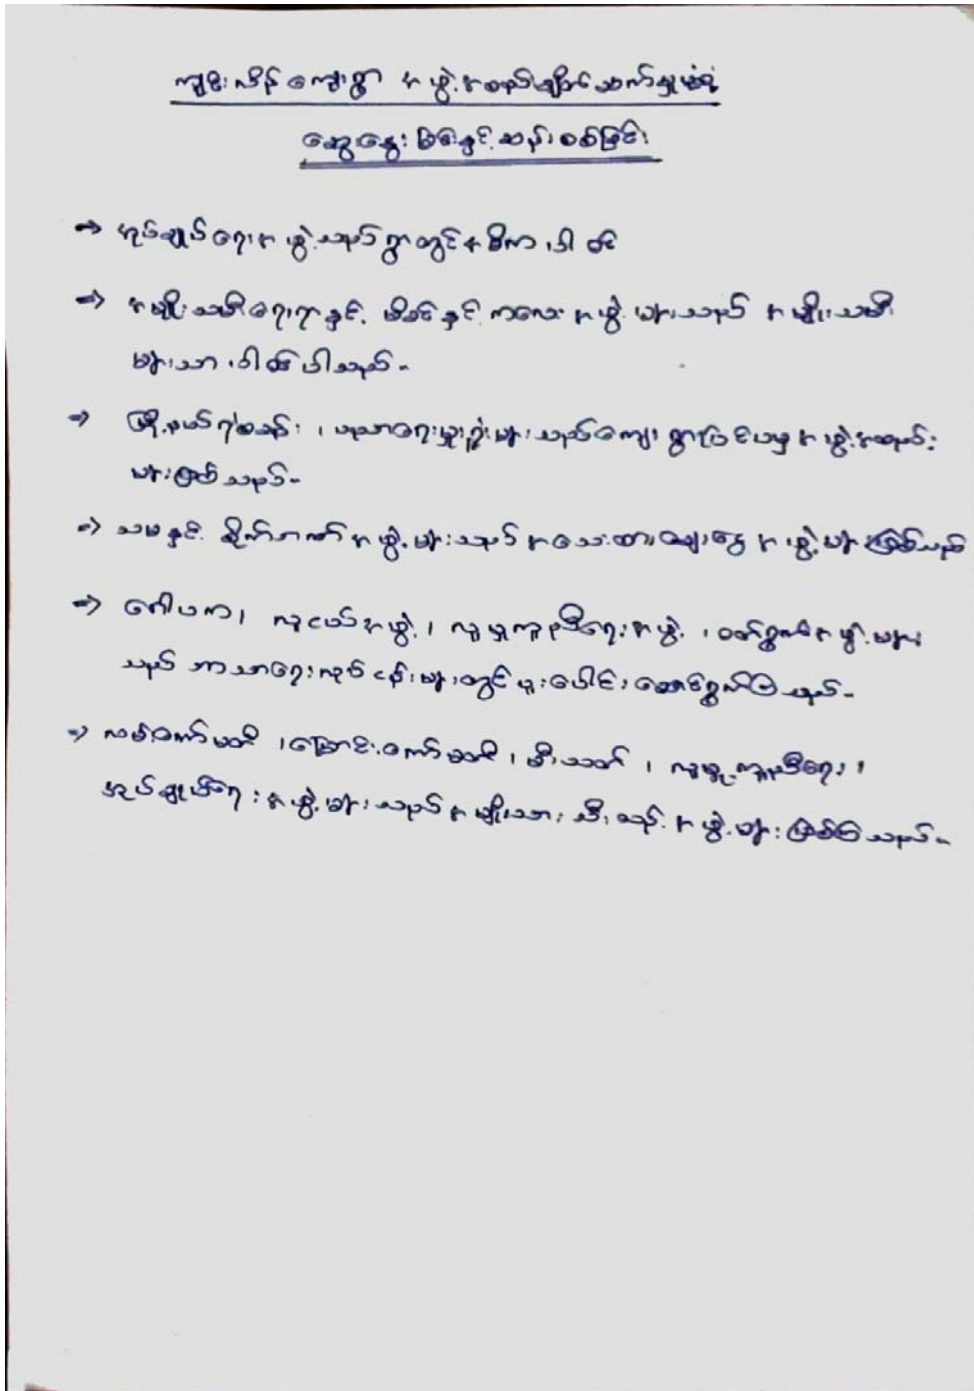 ကျူးလိန်ကျေးရွာ အဖွဲ့အစည်းချိတ်ဆက်မှုပုံစံ
ဆွေးနွေးခြင်းနှင့် ဆန်းစစ်ခြင်း
⇒ အုပ်ချုပ်ရေးအဖွဲ့သည် ရွာတွင်အဓိက ပါဝင်
⇒ အမျိုးသမီးရေးရာနှင့် မိခင်နှင့် ကလေး အဖွဲ့များသည် အမျိုးသမီး
များသာ ပါဝင်ပါသည်။
⇒ မြို့နယ်ရဲစခန်း ၊ ပညာရေးမှူးရုံးများသည် ကျေးရွာပြင်ပမှ အဖွဲ့အစည်း
များဖြစ်သည်။
⇒ သမနှင့် စိုက်ဘဏ် အဖွဲ့များသည် အသေးစားချေးငွေ အဖွဲ့များဖြစ်သည်
⇒ ဂေါပက၊ လူငယ်အဖွဲ့ ၊ လူမှုကူညီရေးအဖွဲ့ ၊ ဝတ်ရွတ်အဖွဲ့များ
သည် ဘာသာရေးလုပ်ငန်းများတွင် ပူးပေါင်းဆောင်ရွက်ကြသည်။
⇒ လမ်းကော်မတီ ၊ မြောင်းကော်မတီ ၊ မီးသတ် ၊ လူမှုကူညီရေး ၊
အုပ်ချုပ်ရေးအဖွဲ့များသည် အမျိုးသား သီးသန့် အဖွဲ့များဖြစ်ကြသည်။